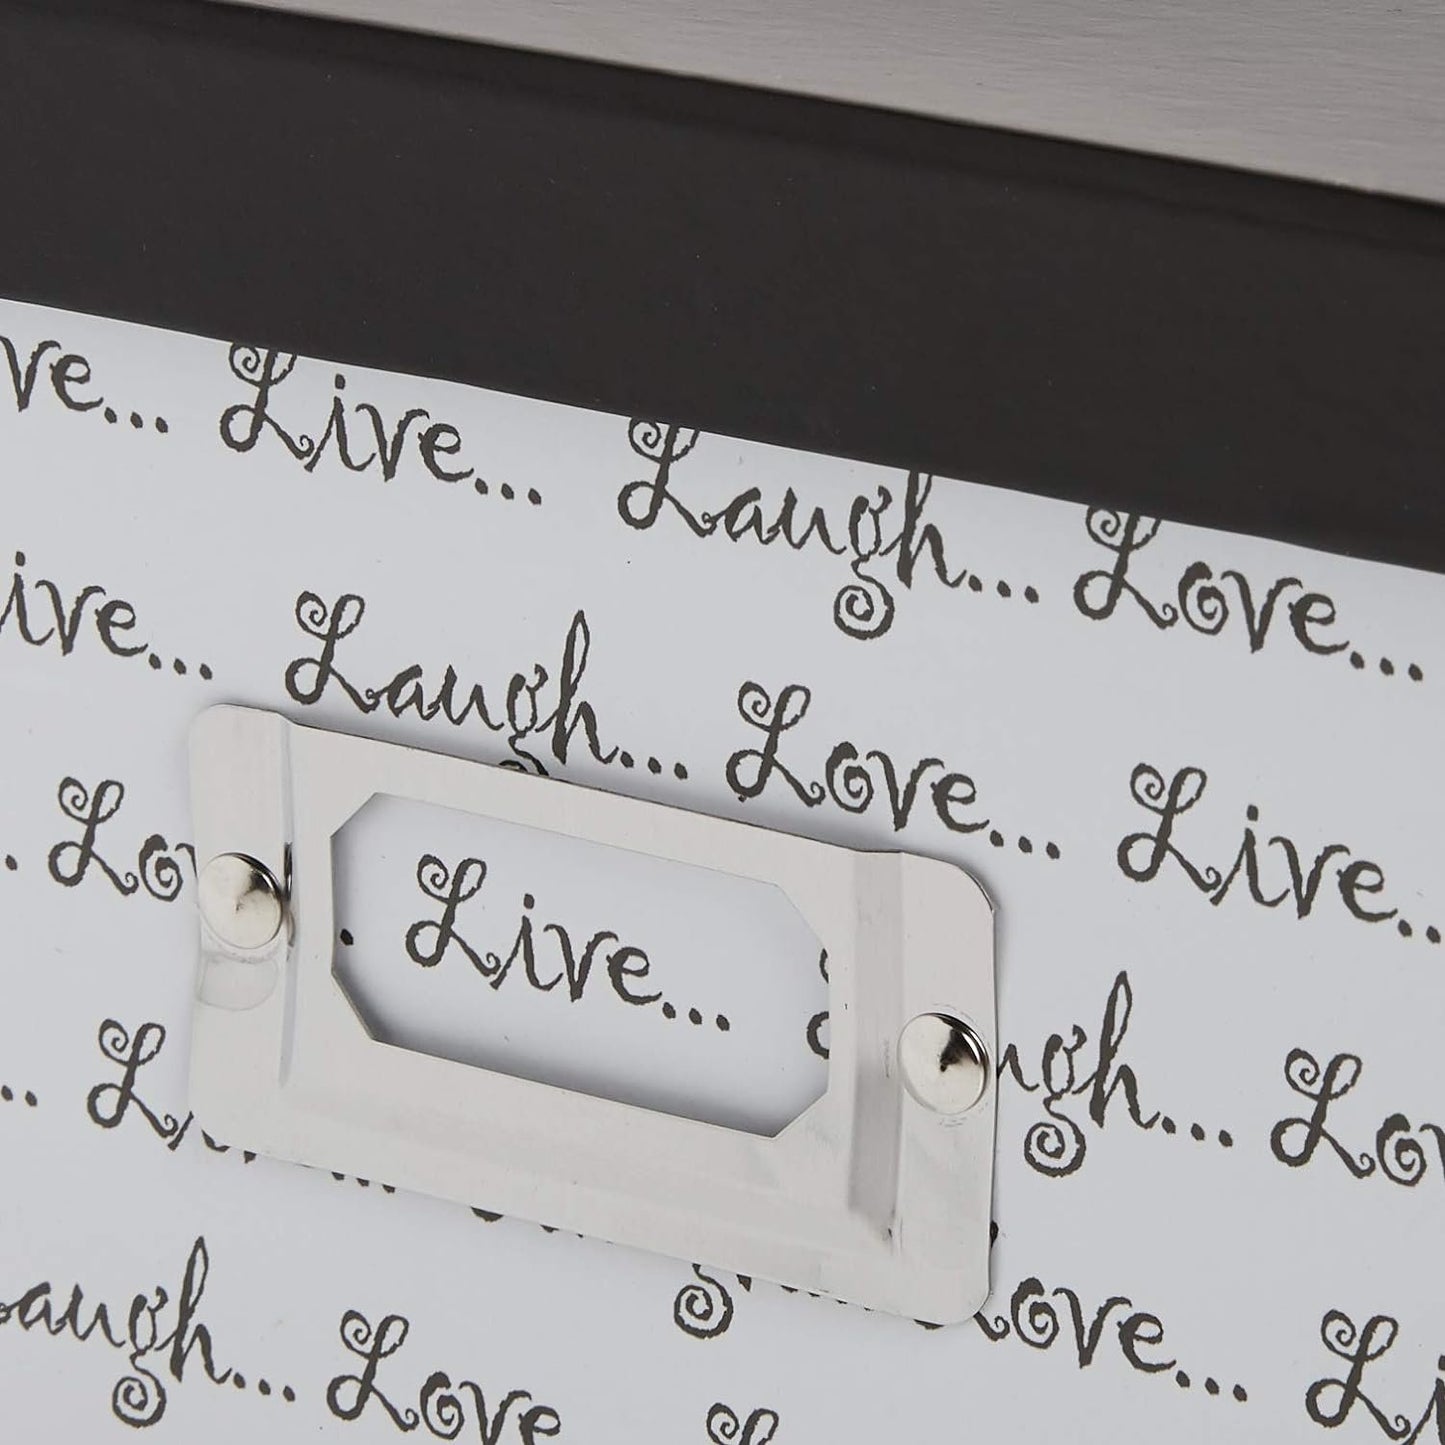 ve... Live... Laugh... Love...
ive... Laugh... Love... Live...
. Lov Live... ugh... Lov
... L ... Love...
augh... Love L